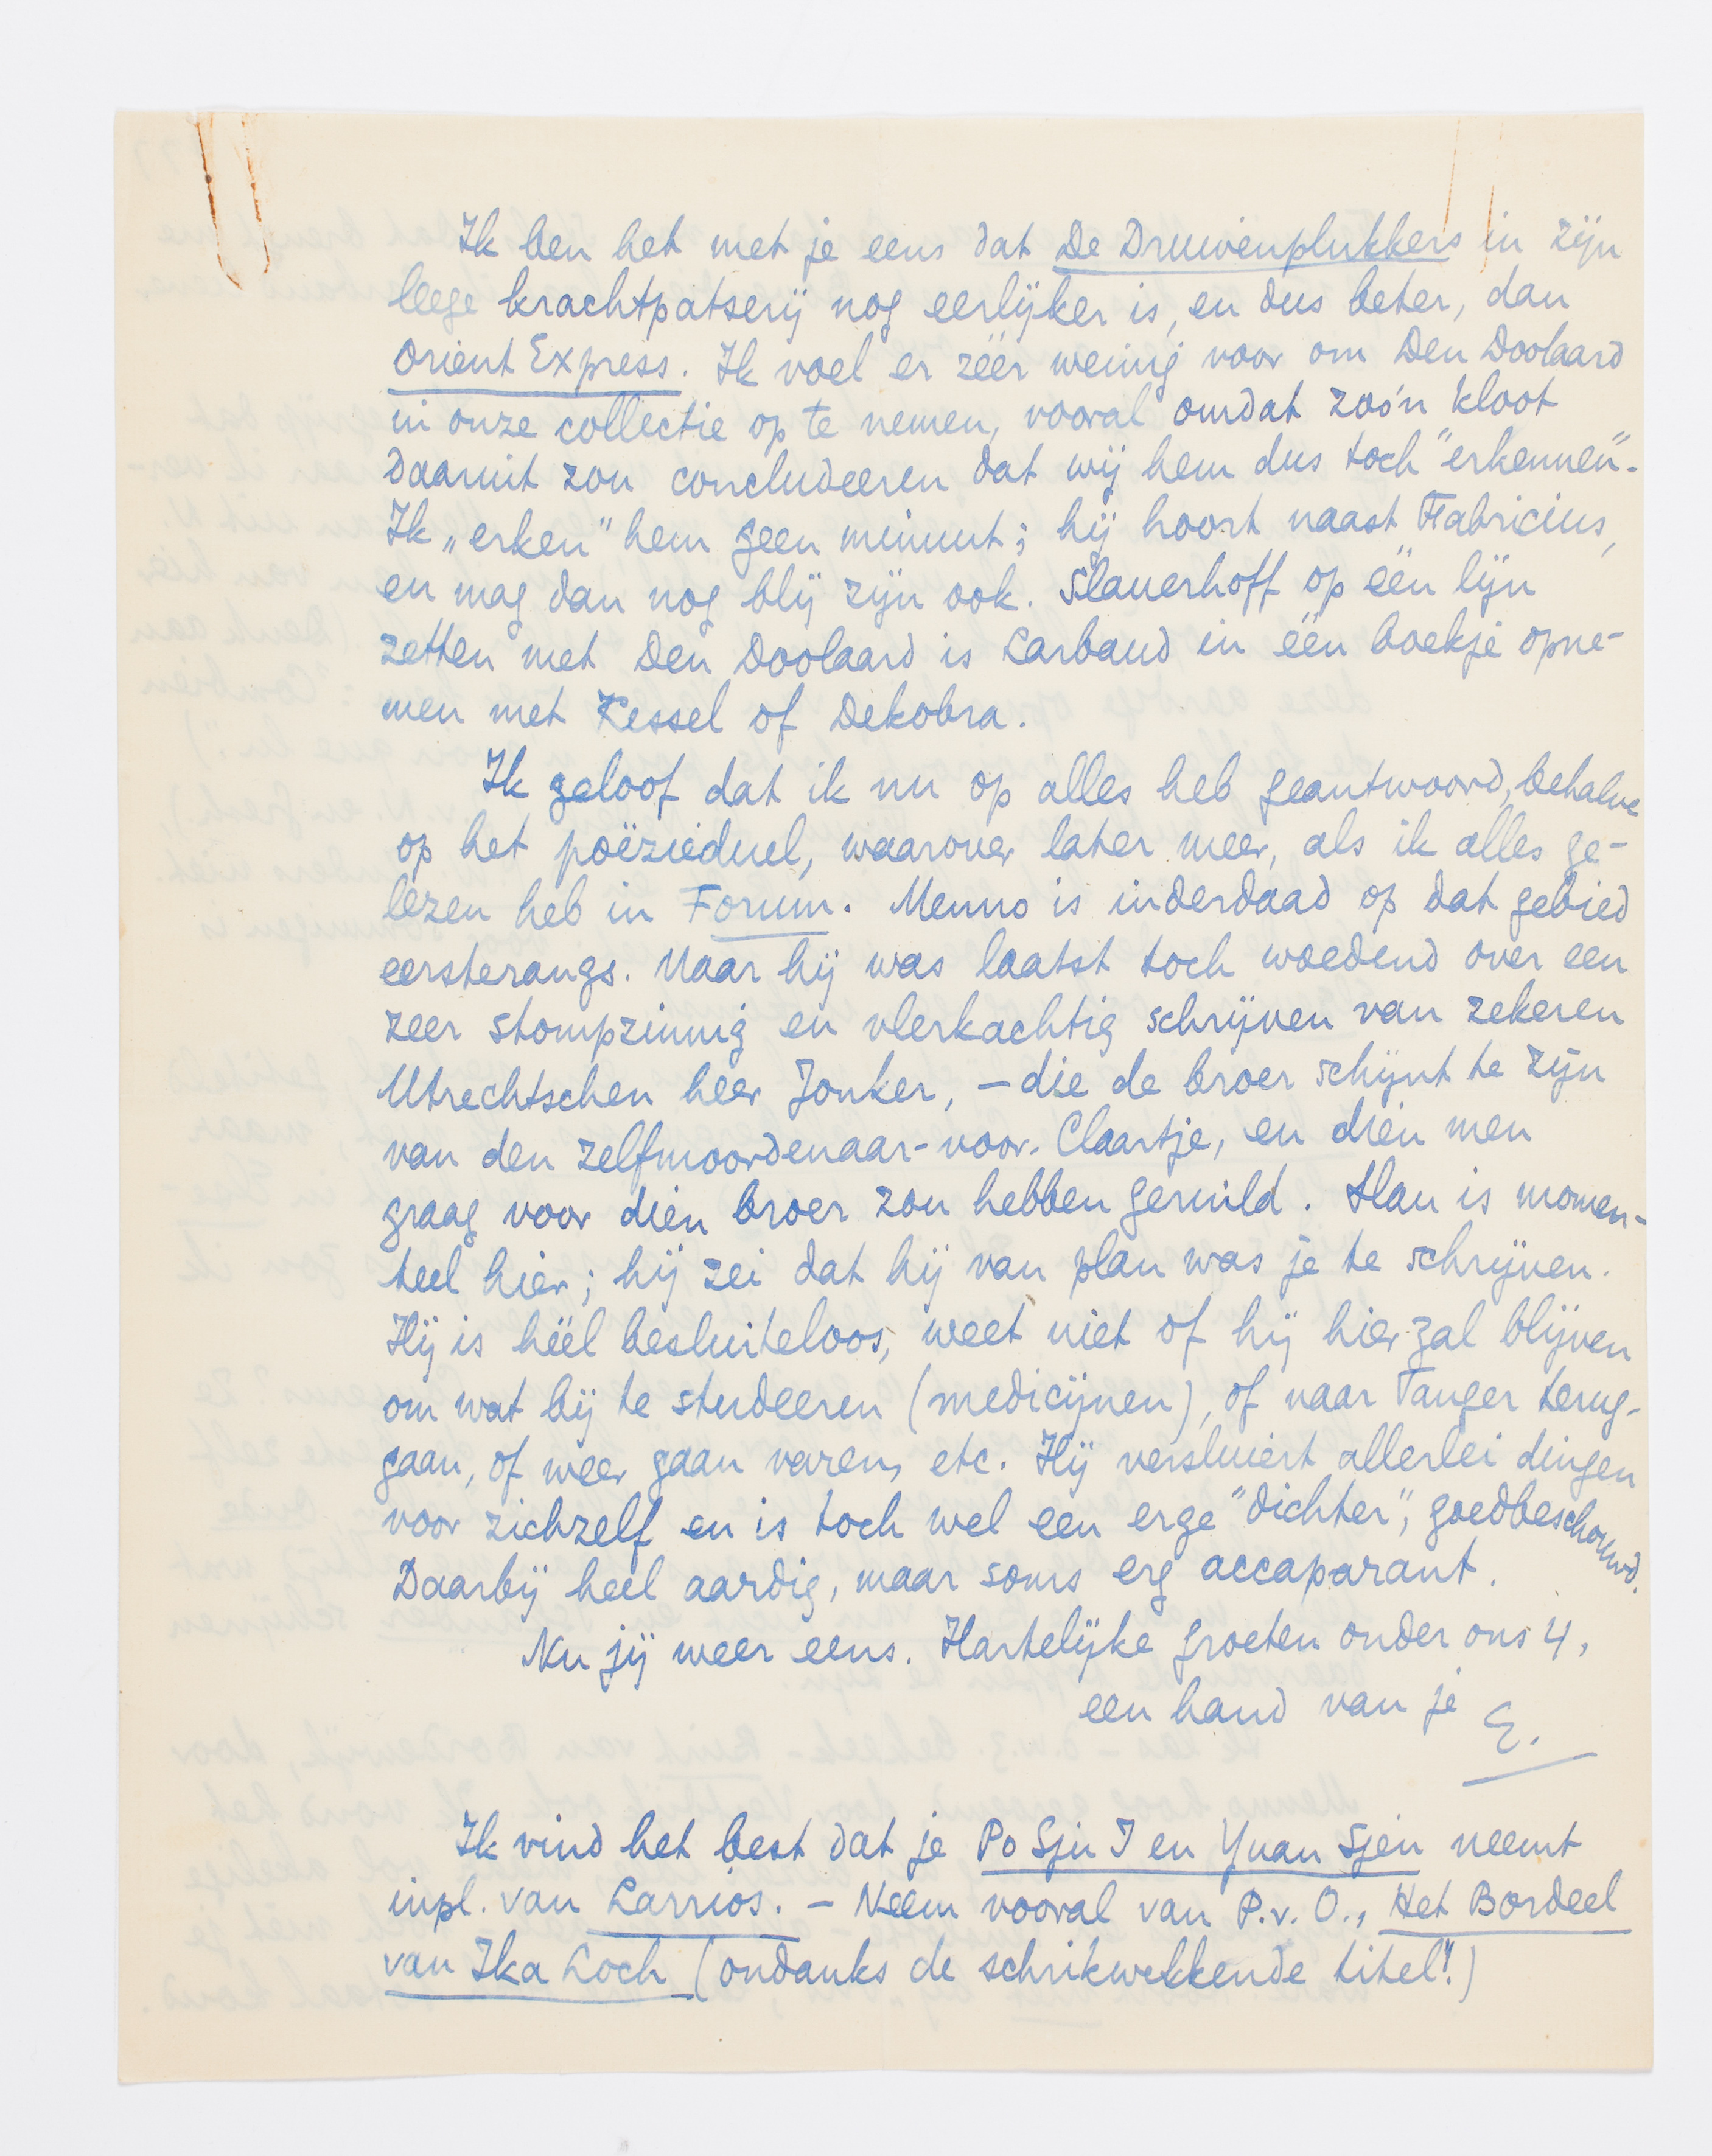 Ik ben het met je eens dat De Druivenplukkers in zijn
leege krachtpatserij nog eerlijker is, en dus beter, dan
Orient Express. Ik voel er zéér weinig voor om Den Doolaard
in onze collectie op te nemen, vooral omdat zoo'n kloot
daaruit zou concludeeren dat wij hem dus toch "erkennen".
Ik „erken" hem geen minuut; hij hoort naast Fabricius,
en mag dan nog blij zijn ook. Slauerhoff op één lijn
zetten met Den Doolaard is Larbaud in één boekje opne-
men met Kessel of Dekobra.
Ik geloof dat ik nu op alles heb geantwoord, behalve
op het poëzieduel, waarover later meer, als ik alles ge-
lezen heb in Forum. Menno is inderdaad op dat gebied
eersterangs. Maar hij was laatst toch woedend over een
zeer stompzinnig en vlerkachtig schrijven van zekeren
Utrechtschen heer Jonker, – die de broer schijnt te zijn
van den zelfmoordenaar-voor-Claartje, en dien men
graag voor dien broer zou hebben geruild. Slau is momen-
teel hier; hij zei dat hij van plan was je te schrijven.
Hij is héél besluiteloos, weet niet of hij hier zal blijven
om wat bij te studeeren (medicijnen), of naar Tanger terug-
gaan, of weer gaan varen, etc. Hij versluiert allerlei dingen
voor zichzelf en is toch wel een erge "dichter", goedbeschouwd.
Daarbij heel aardig, maar soms erg accaparant.
Nu jij weer eens. Hartelijke groeten onder ons 4,
een hand van je E.
Ik vind het best dat je Po Sju I en Yuan Sjen neemt
inpl. van Larrios. – Neem vooral van P.v.O., Het Bordeel
van Ika Loch (ondanks de schrikwekkende titel!)